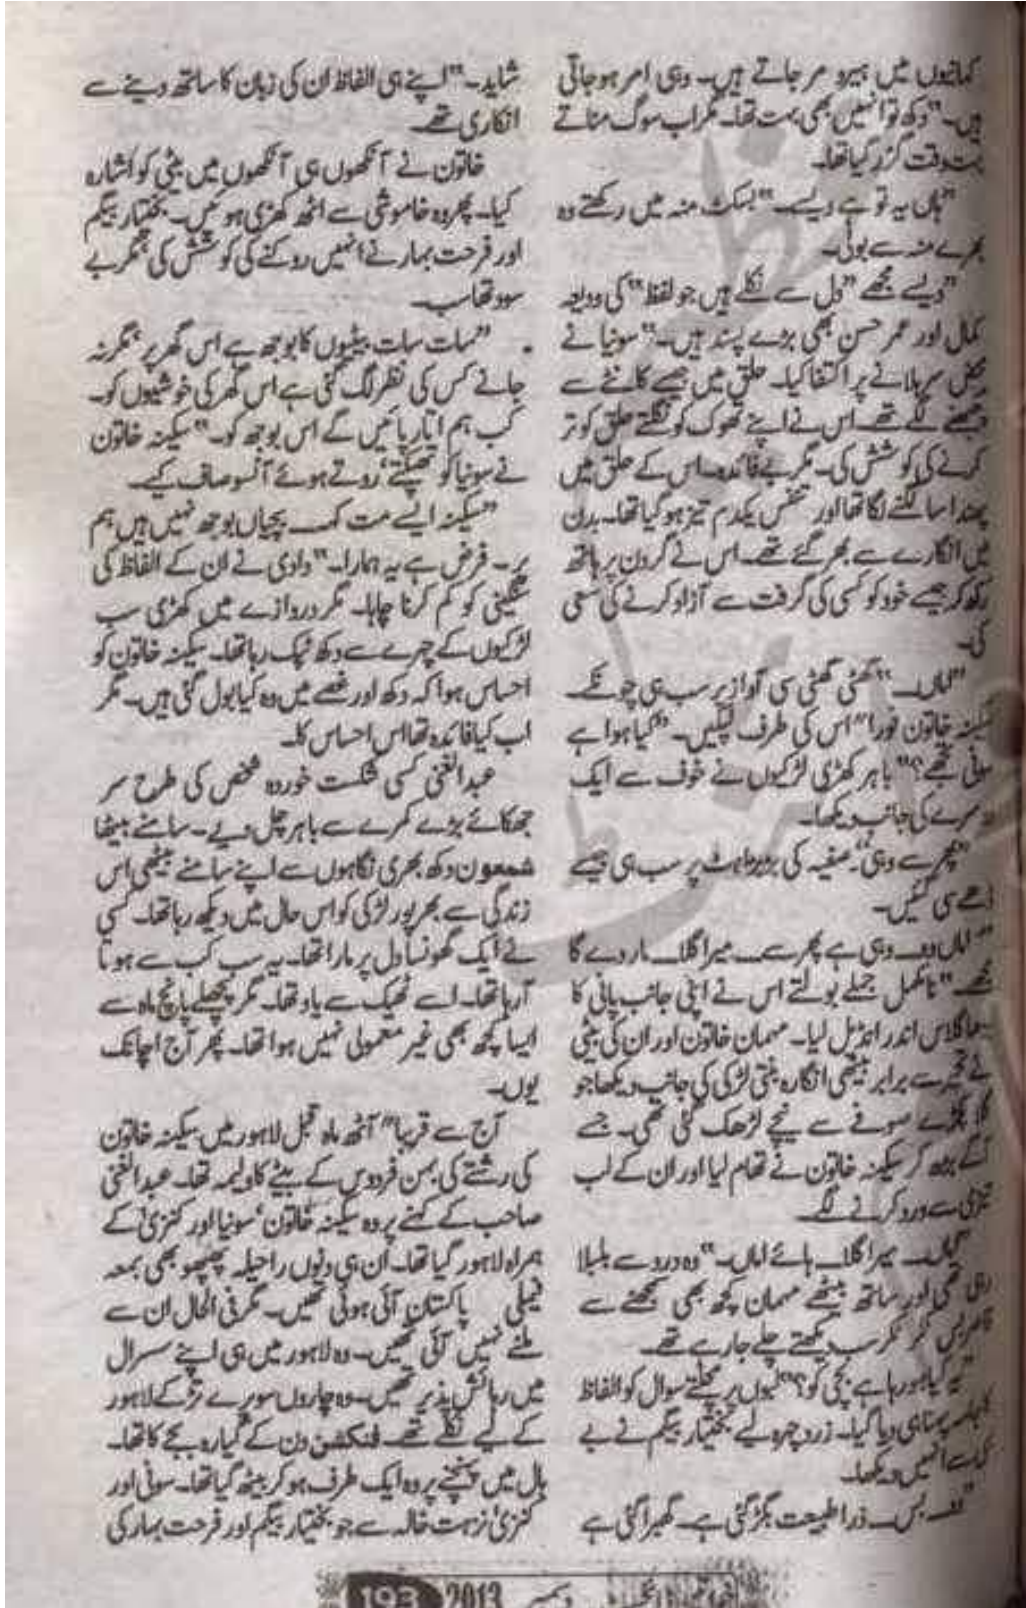 کہانیوں میں ہیرو مر جاتے ہیں۔ وہی امر ہو جاتی
ہیں۔" دکھ تو انہیں بھی بہت تھا۔ مگر اب سوگ مناتے
بہت وقت گزر گیا تھا۔
"ہاں یہ تو ہے ویسے۔" بسکٹ منہ میں رکھتے وہ
بھرے منہ سے بولی۔
"ویسے مجھے "دل سے نکلے ہیں جو لفظ" کی ودیعہ
کمال اور عمر حسن بھی بڑے پسند ہیں۔" سونیا نے
محض سر ہلانے پر اکتفا کیا۔ حلق میں جیسے کانٹے سے
چبھنے لگے تھے۔ اس نے اپنے تھوک کو نگلتے حلق کو تر
کرنے کی کوشش کی۔ مگر بے فائدہ۔ اس کے حلق میں
پھندا سا لگنے لگا تھا اور تنفس یکدم تیز ہو گیا تھا۔ بدن
میں انگارے سے بھر گئے تھے۔ اس نے گردن پر ہاتھ
رکھ کر جیسے خود کو کسی کی گرفت سے آزاد کرنے کی سعی
کی۔
"اماں۔" گھٹی گھٹی سی آواز پر سب ہی چونکے۔
سکینہ خاتون فوراً" اس کی طرف لپکیں۔ "کیا ہوا ہے
سونی تجھے؟" باہر کھڑی لڑکیوں نے خوف سے ایک
دوسرے کی جانب دیکھا۔
"پھر سے وہی۔" صفیہ کی بڑبڑاہٹ پر سب ہی جیسے
ڈھے سی گئیں۔
"اماں وہ۔ وہی ہے پھر سے۔ میرا گلا۔ مار دے گا
مجھے۔" نامکمل جملے بولتے اس نے اپنی جانب پانی کا
گلاس اندر انڈیل لیا۔ مہمان خاتون اور ان کی بیٹی
نے تحیر سے برابر بیٹھی انگارہ بنتی لڑکی کی جانب دیکھا جو
گلا پکڑے صوفے سے نیچے لڑھک گئی تھی۔ جسے
آگے بڑھ کر سکینہ خاتون نے تھام لیا اور ان کے لب
تیزی سے ورد کرنے لگے۔
میرا گلا۔ ہائے اماں۔" وہ درد سے بلبلا
رہی تھی اور ساتھ بیٹھے مہمان کچھ بھی سمجھنے سے
قاصر بس ٹکر ٹکر سب دیکھتے چلے جا رہے تھے۔
"یہ کیا ہو رہا ہے بچی کو؟" لبوں پر مچلتے سوال کو الفاظ
کا جامہ پہنا ہی دیا گیا۔ زرد چہرہ لیے بختیار بیگم نے بے
انہیں دیکھا۔
بس۔ ذرا طبیعت بگڑ گئی ہے۔ گھبرا گئی ہے
شاید۔" اپنے ہی الفاظ ان کی زبان کا ساتھ دینے سے
انکاری تھے۔
خاتون نے آنکھوں ہی آنکھوں میں بیٹی کو اشارہ
کیا۔ پھر وہ خاموشی سے اٹھ کھڑی ہوئیں۔ بختیار بیگم
اور فرحت بہار نے انہیں روکنے کی کوشش کی، مگر بے
سود تھا سب۔
"سات سات بیٹیوں کا بوجھ ہے اس گھر پر، مگر نہ
جانے کس کی نظر لگ گئی ہے اس گھر کی خوشیوں کو۔
کب ہم اتار پائیں گے اس بوجھ کو۔" سکینہ خاتون
نے سونیا کو تھپکتے، روتے ہوئے آنسو صاف کیے۔
"سکینہ ایسے مت کہہ۔ بچیاں بوجھ نہیں ہیں ہم
پر۔ فرض ہے یہ ہمارا۔" دادی نے ان کے الفاظ کی
سنگینی کو کم کرنا چاہا۔ مگر دروازے میں کھڑی سب
لڑکیوں کے چہرے سے دکھ ٹپک رہا تھا۔ سکینہ خاتون کو
احساس ہوا کہ دکھ اور غصے میں وہ کیا بول گئی ہیں۔ مگر
اب کیا فائدہ تھا اس احساس کا۔
عبدالغنی کسی شکست خوردہ شخص کی طرح سر
جھکائے بڑے کمرے سے باہر چل دیے۔ سامنے بیٹھا
شمعون دکھ بھری نگاہوں سے اپنے سامنے بیٹھی اس
زندگی سے بھرپور لڑکی کو اس حال میں دیکھ رہا تھا۔ کسی
نے ایک گھونسا دل پر مارا تھا۔ یہ سب کب سے ہوتا
آ رہا تھا۔ اسے ٹھیک سے یاد تھا۔ مگر پچھلے پانچ ماہ سے
ایسا کچھ بھی غیر معمولی نہیں ہوا تھا۔ پھر آج اچانک
یوں۔
آج سے قریبا" آٹھ ماہ قبل لاہور میں سکینہ خاتون
کی رشتے کی بہن فردوس کے بیٹے کا ولیمہ تھا۔ عبدالغنی
صاحب کے کہنے پر وہ سکینہ خاتون، سونیا اور کنزیٰ کے
ہمراہ لاہور گیا تھا۔ ان ہی دنوں راحیلہ پھپھو بھی بمعہ
فیملی پاکستان آئی ہوئی تھیں۔ مگر فی الحال ان سے
ملنے نہیں آئی تھیں۔ وہ لاہور میں ہی اپنے سسرال
میں رہائش پذیر تھیں۔ وہ چاروں سویرے تڑکے لاہور
کے لیے نکلے تھے۔ فنکشن دن کے گیارہ بجے کا تھا۔
ہال میں پہنچنے پر وہ ایک طرف ہو کر بیٹھ گیا تھا۔ سونی اور
کنزیٰ نزہت خالہ سے جو بختیار بیگم اور فرحت بہار کی
دسمبر 2013 193